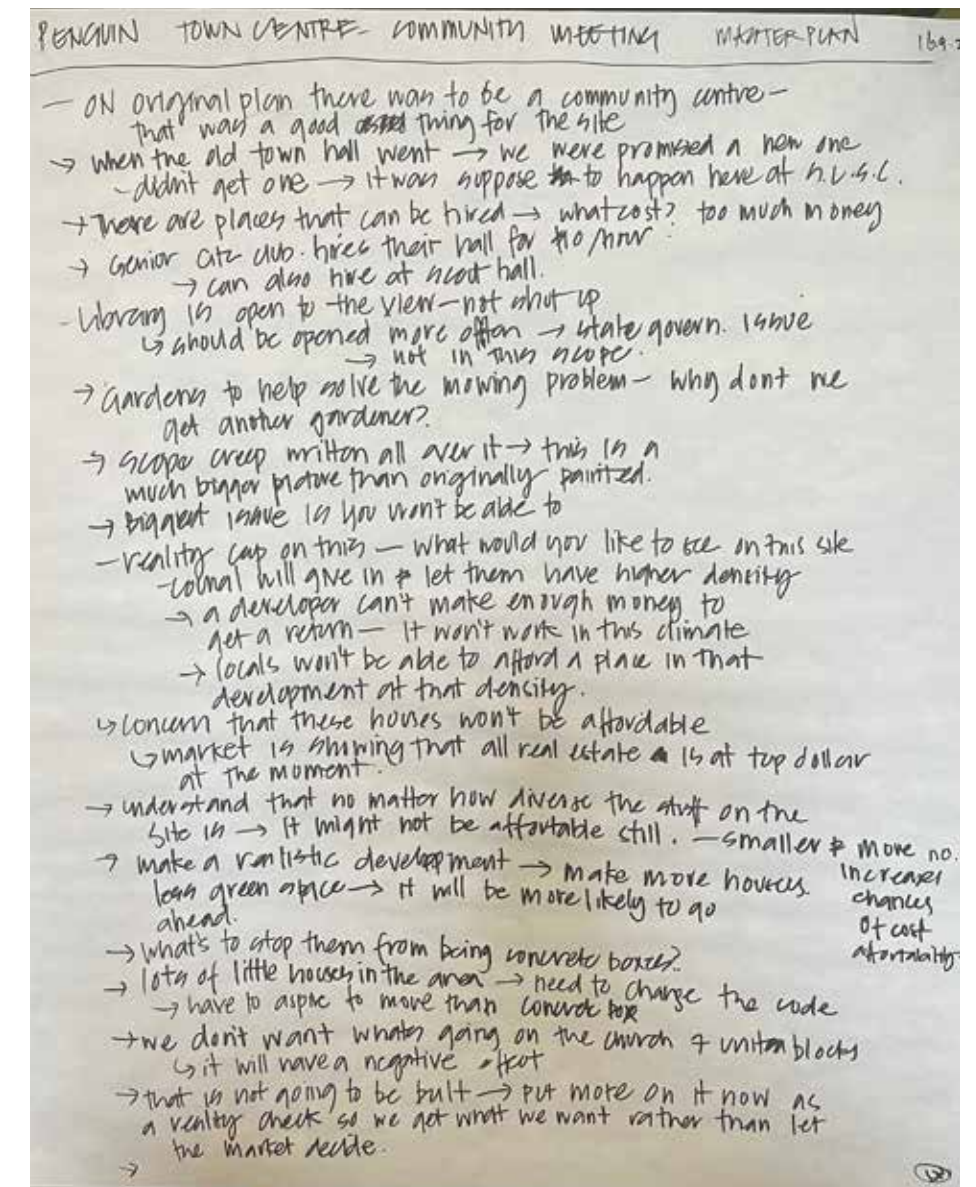 PENGUIN TOWN CENTRE - COMMUNITY MEETING MASTERPLAN
— ON original plan there was to be a community centre —
that was a good thing for the site
→ when the old town hall went → we were promised a new one
- didn't get one → it was suppose to happen here at
→ There are places that can be hired → what cost? too much money
→ senior citz club. hires their hall for $10/hour
→ can also hire at scout hall.
- Library is open to the view — not shut up
↳ should be opened more often → state govern. issue
→ not in this scope.
→ Gardens to help solve the mowing problem — why dont we
get another gardener?
→ scope creep written all over it → this is a
much bigger picture than originally painted.
→ Biggest issue is you won't be able to
— reality cap on this — what would you like to see on this site
- council will give in & let them have higher density
→ a developer can't make enough money to
get a return — it won't work in this climate
→ locals won't be able to afford a place in that
development at that density.
↳ concern that these houses won't be affordable
↳ market is showing that all real estate is at top dollar
at the moment.
→ understand that no matter how diverse the stuff on the
site is → it might not be affortable still. — smaller & more no.
increases
chances
of cost
afortability
→ make a realistic development → make more houses.
less green space → it will be more likely to go
ahead.
→ what's to stop them from being concrete boxes?
→ lots of little houses in the area → need to change the code
→ have to aspire to more than concrete box
→ we don't want whats going on the church & blocks
↳ it will have a negative effect
→ that is not going to be built → put more on it now as
a reality check so we get what we want rather than let
the market decide.
→